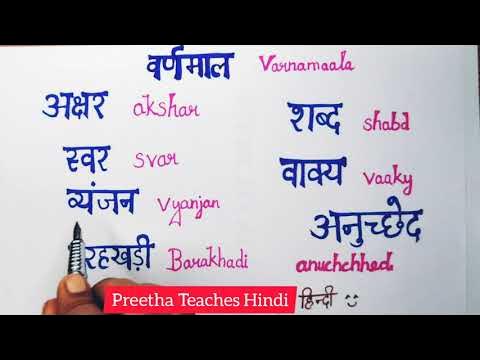 वर्णमाल Varnamaala
अक्षर akshar
स्वर svar
व्यंजन vyanjan
रहखड़ी Barakhadi
शब्द shabd
वाक्य vaaky
अनुच्छेद
anuchchhed
हिन्दी
Preetha Teaches Hindi